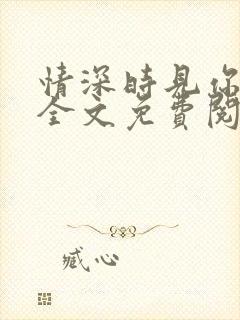 情深時見你
全文免費閱
臧心